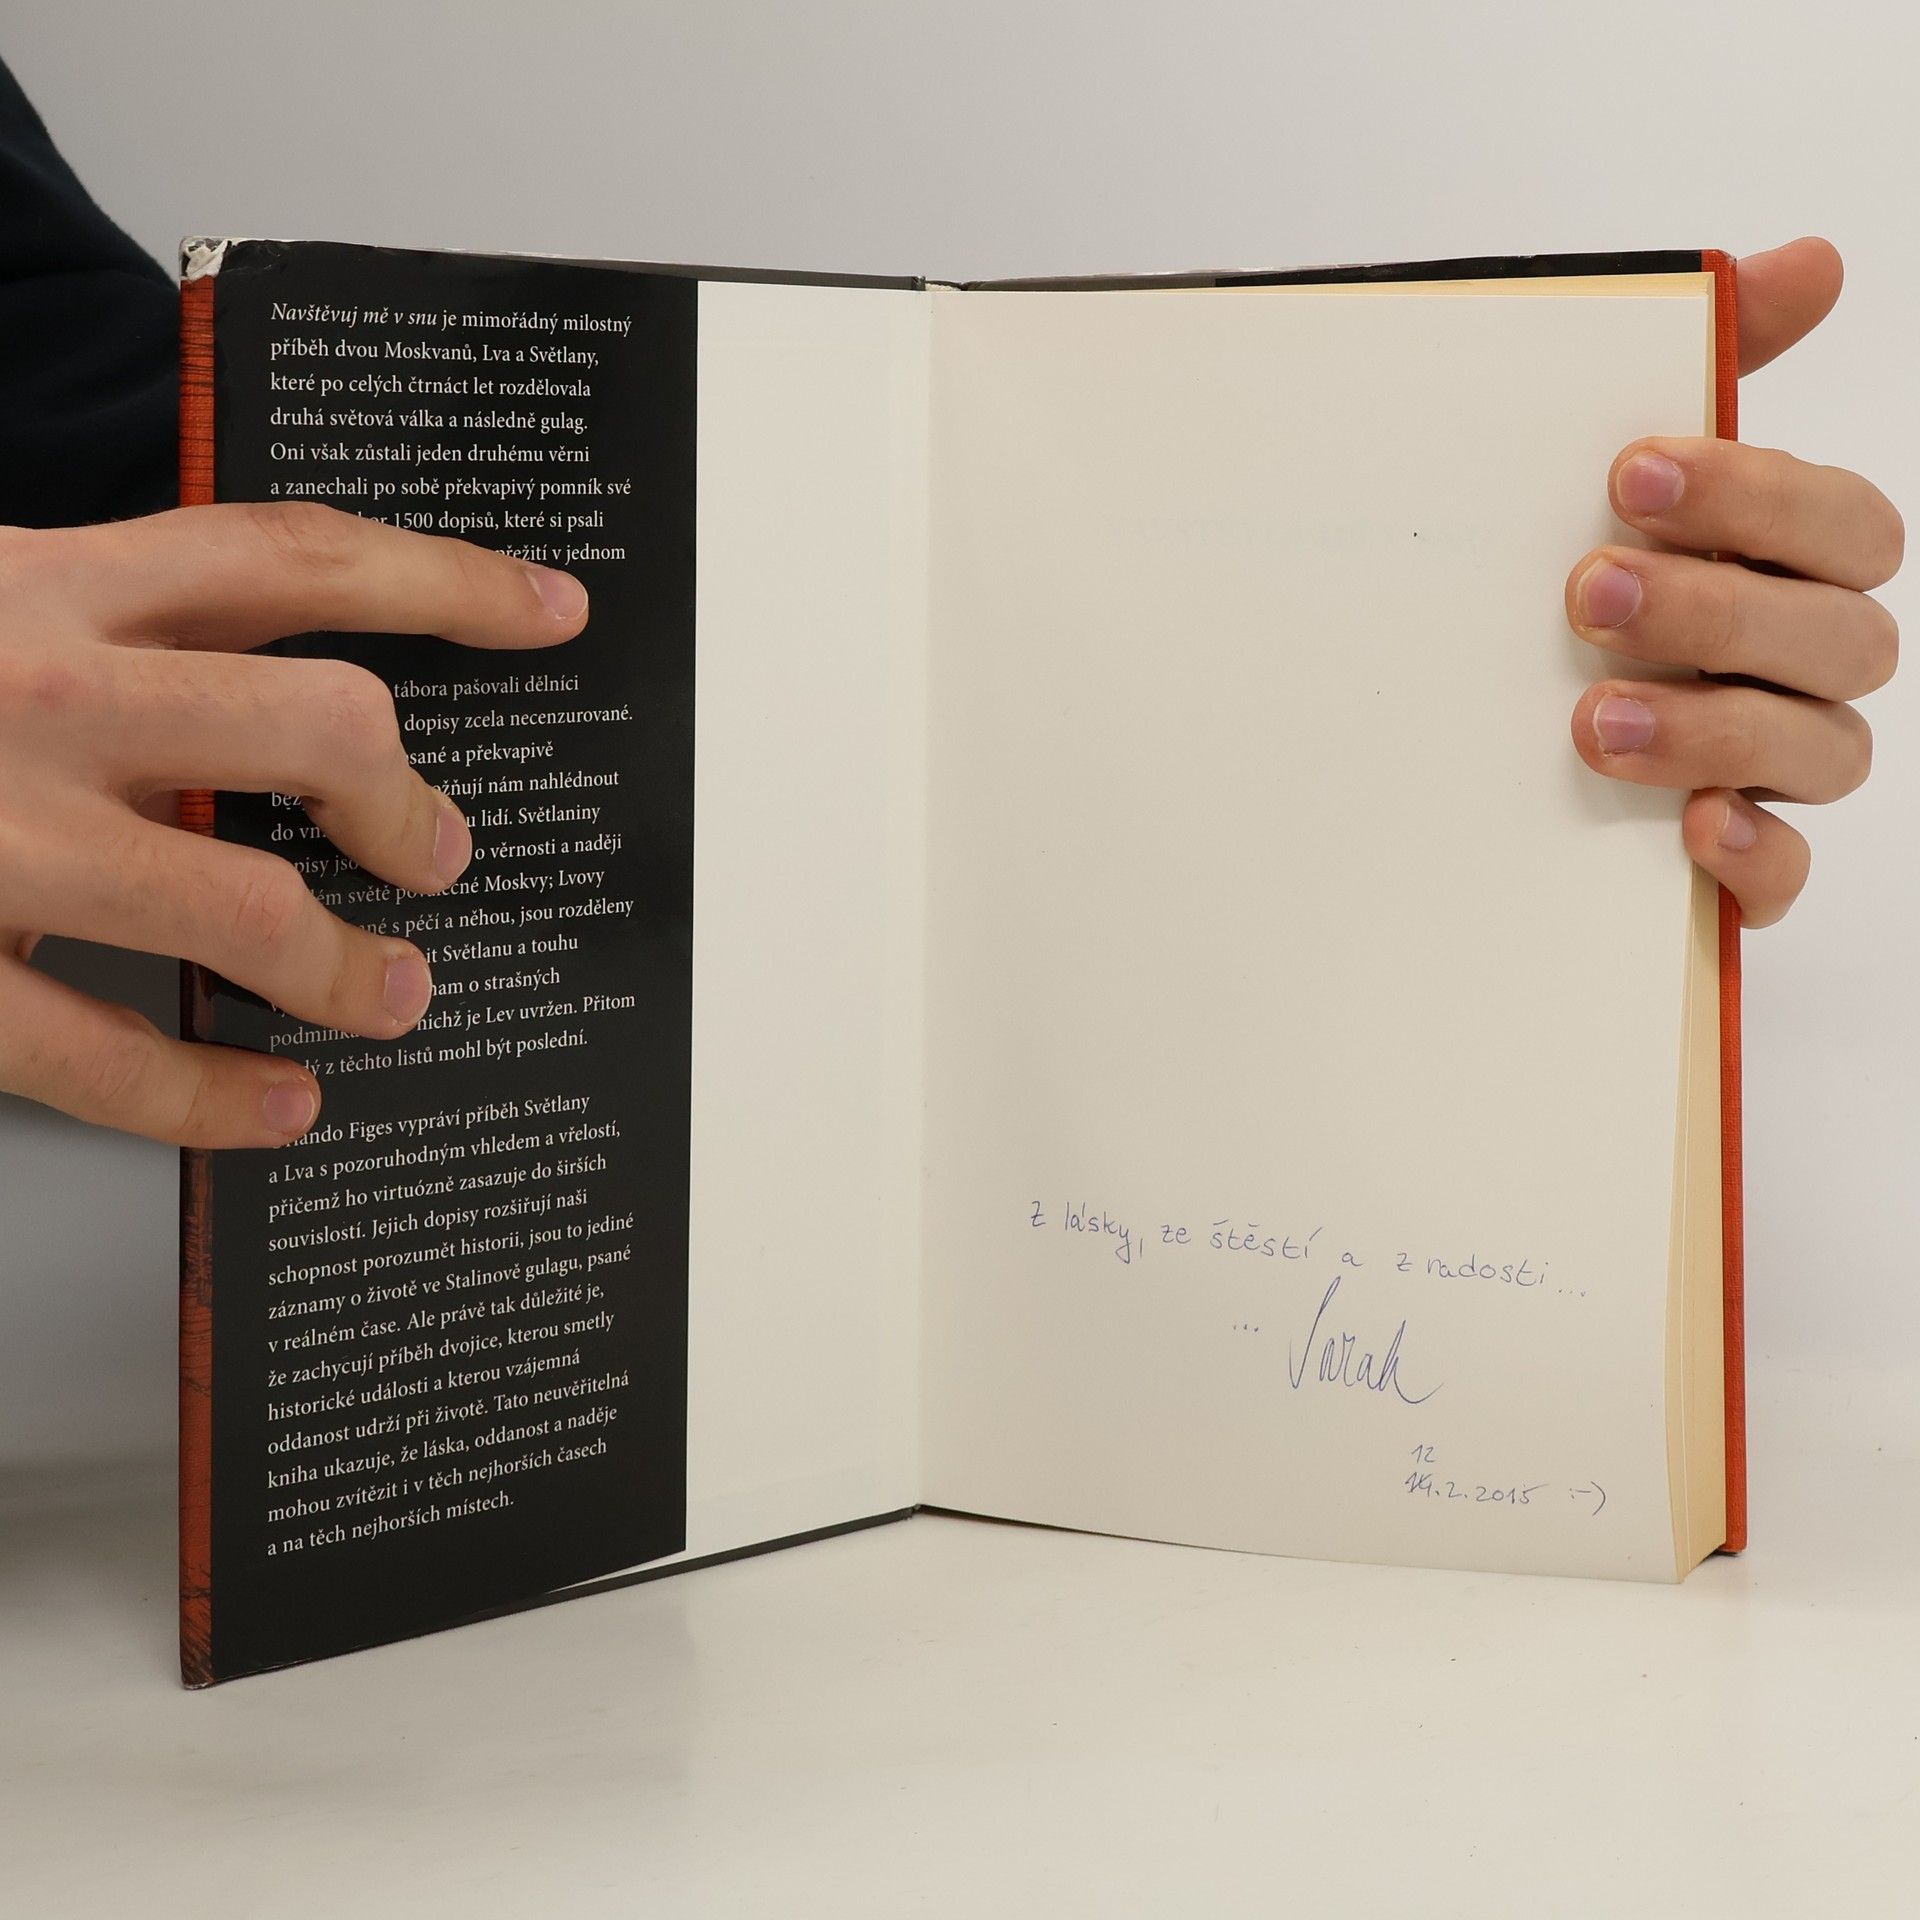 Navštěvuj mě v snu je mimořádný milostný
příběh dvou Moskvanů, Lva a Světlany,
které po celých čtrnáct let rozdělovala
druhá světová válka a následně gulag.
Oni však zůstali jeden druhému věrni
a zanechali po sobě překvapivý pomník své
1500 dopisů, které si psali
v jednom
tábora pašovali dělníci
dopisy zcela necenzurované.
a překvapivě
nám nahlédnout
do lidí. Světlaniny
o věrnosti a naději
světě Moskvy; Lvovy
s péčí a něhou, jsou rozděleny
Světlanu a touhu
o strašných
nichž je Lev uvržen. Přitom
z těchto listů mohl být poslední.
Figes vypráví příběh Světlany
a Lva s pozoruhodným vhledem a vřelostí,
přičemž ho virtuózně zasazuje do širších
souvislostí. Jejich dopisy rozšiřují naši
schopnost porozumět historii, jsou to jediné
záznamy o životě ve Stalinově gulagu, psané
v reálném čase. Ale právě tak důležité je,
že zachycují příběh dvojice, kterou smetly
historické události a kterou vzájemná
oddanost udrží při životě. Tato neuvěřitelná
kniha ukazuje, že láska, oddanost a naděje
mohou zvítězit i v těch nejhorších časech
a na těch nejhorších místech.
z lásky, ze štěstí a z radosti...
... Sarah
12
14.2.2015 :-)